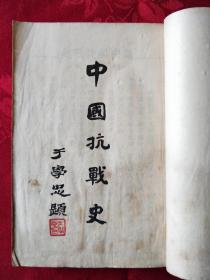 中國抗戰史
于學忠題